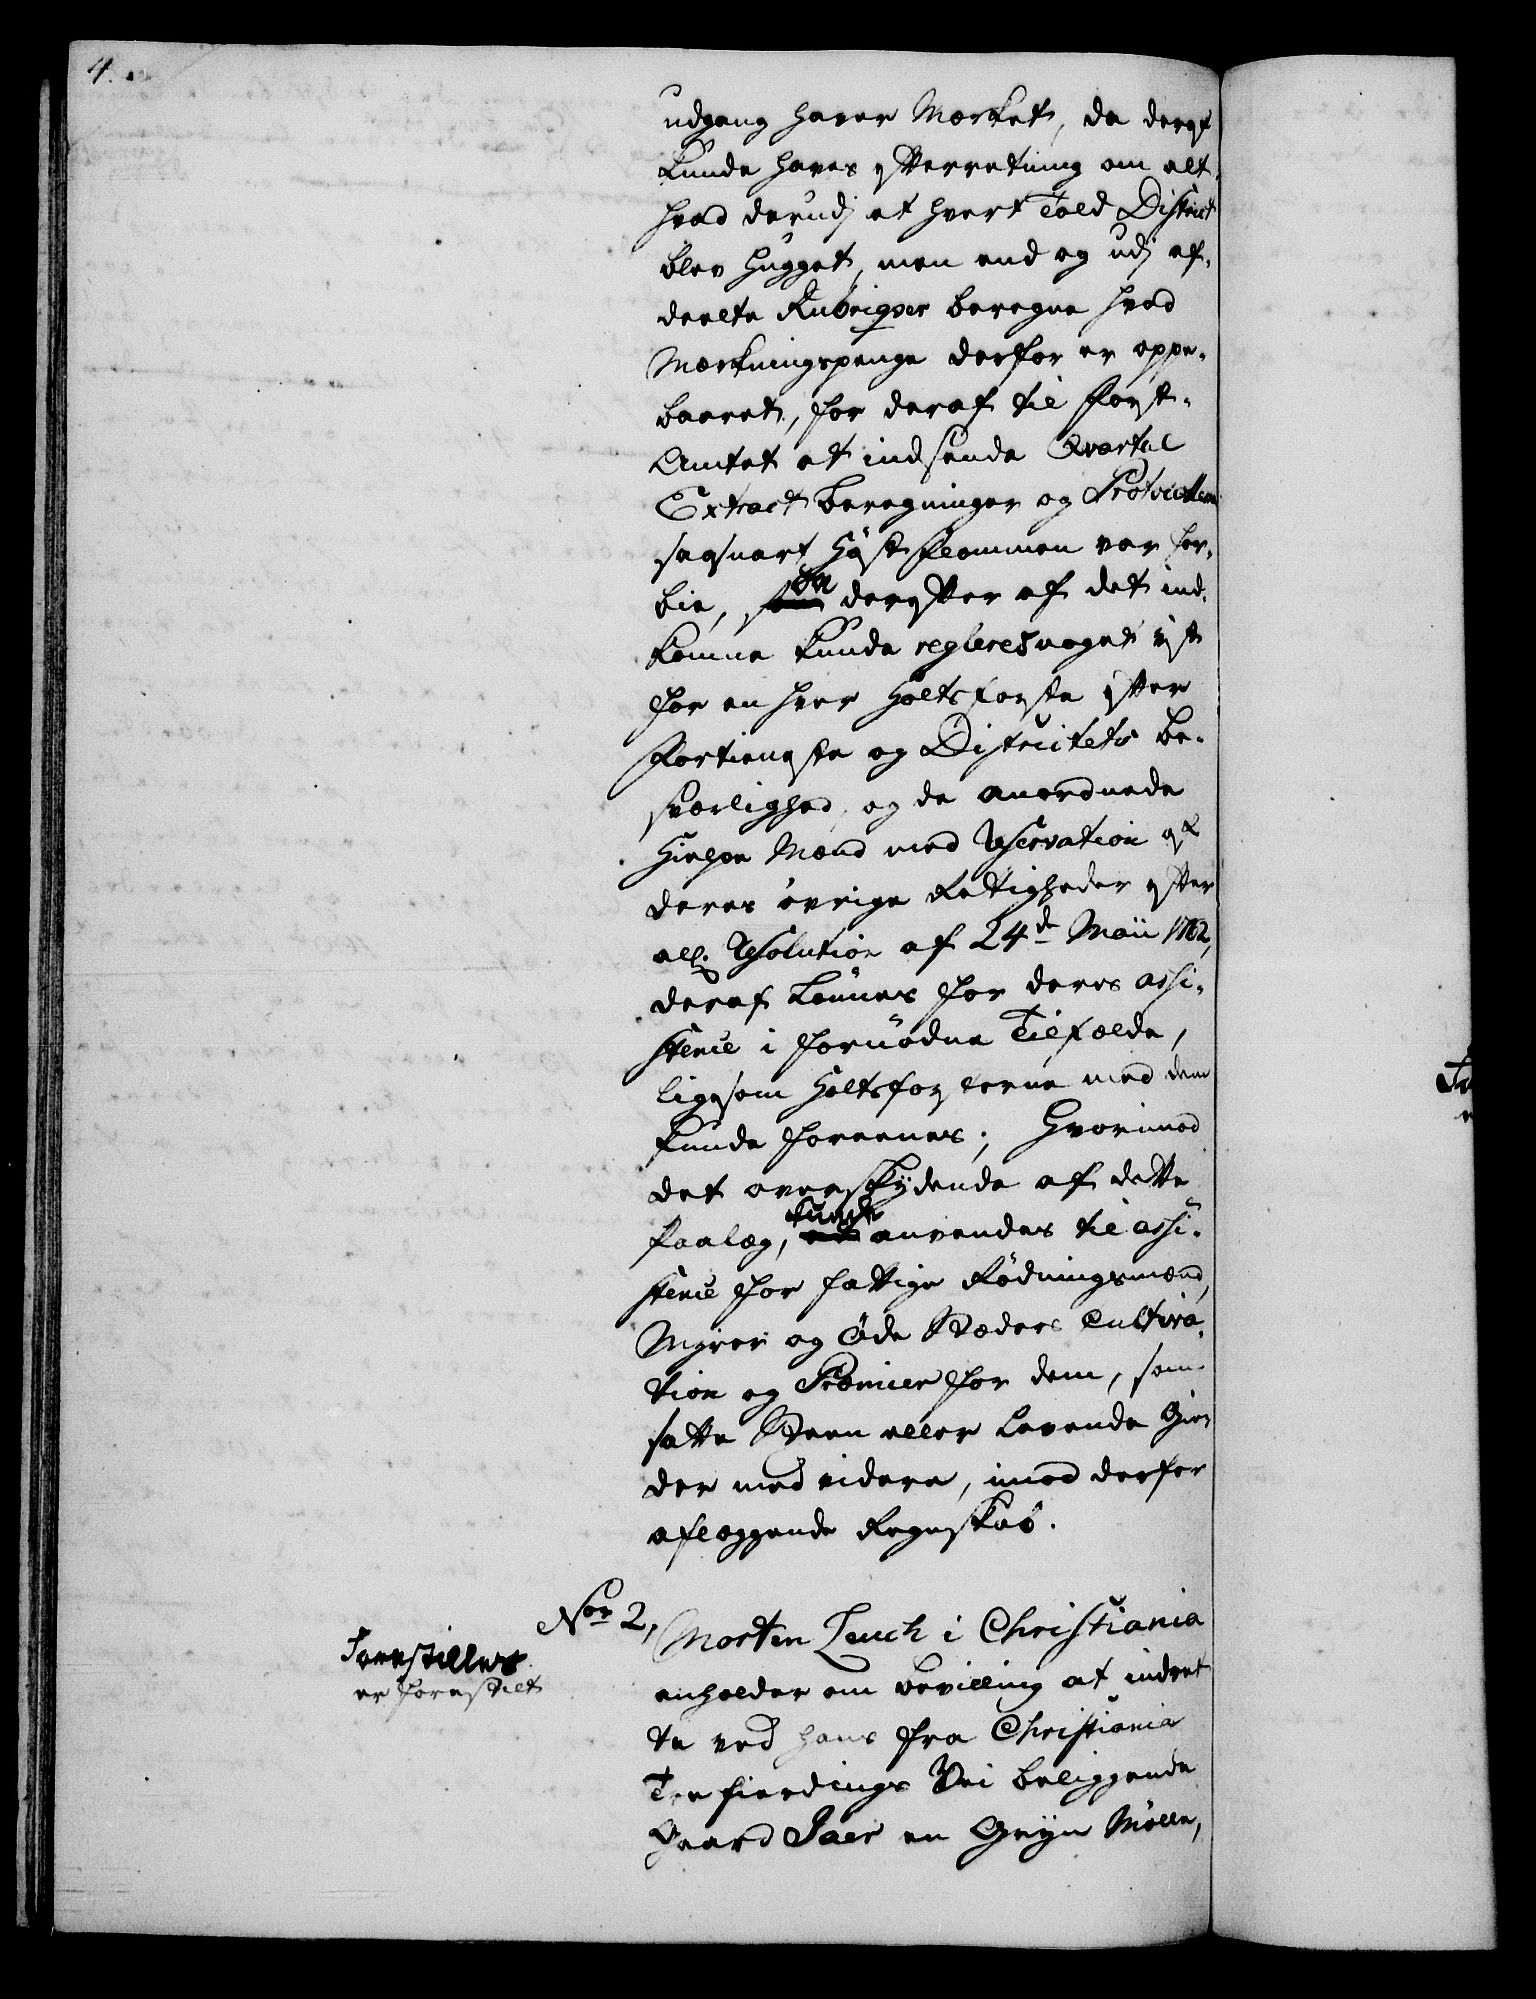 4.
udgang haver Mærket, da deraf
kunde haves efterretning om alt,
hvad derudj et hvert Told District
blev hugget, men end og udj af-
deelte Rubriqver beregne hvad
Mærkningspenge derfor er oppe-
baaret, for deraf til Forst-
Amtet at indsende Qvartal
Extract beregninger og Protocollerne
saasnart Høst flommen var for-
bie, da derefter af det ind-
komne kunde regleres noget vist
for en hver Holtsforste efter
Fortieneste og Districtets be-
sværlighed, og de anordnede
Hielpe Mænd med Reservation af
deres øvrige Rettigheder efter
all. Resolution af 24de Maii 1762,
deraf lønnes for deres assi-
stence i fornødne Tilfælde,
ligesom Holtsforsterne med dem
kunde foreenes; Hvorimod
det overskydende af dette
Paalæg, kunde anvendes til assi-
stence for fattige Rødningsmænd,
Myrer og Øde Stæders Cultiva-
tion og Præmier for dem, som
satte Steen eller levende Gier-
der med videre, imod derfor
aflæggende Regnskab.
Nor 2, Morten Leuch i Christiania
Forestilles
er forestilt
anholder om bevilling at indret-
te ved hans fra Christiania
Tre fierdings Vei beliggende
Gaard Jaer en Gryn Mølle,